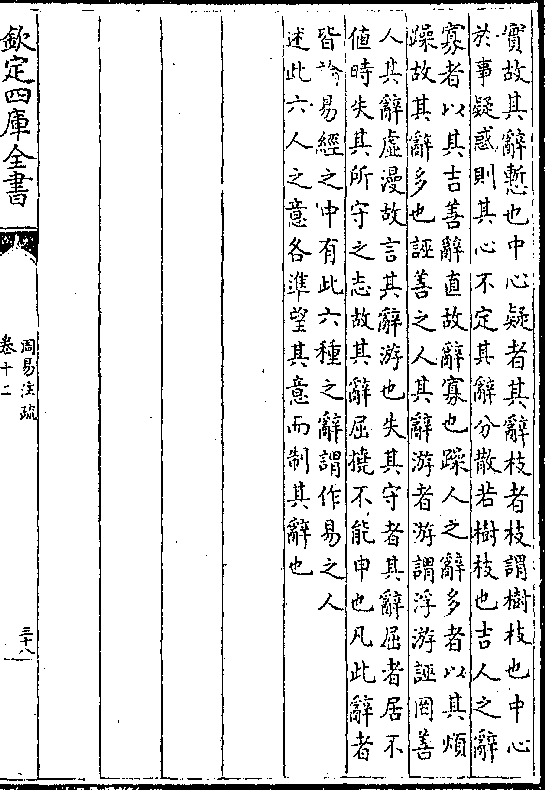 實故其辭慙也中心疑者其辭枝者枝謂樹枝也中心
於事疑惑則其心不定其辭分散若樹枝也吉人之辭
寡者以其吉善辭直故辭寡也躁人之辭多者以其煩
躁故其辭多也誣善之人其辭游者游謂浮游誣罔善
人其辭虛漫故言其辭游也失其守者其辭屈者居不
值時失其所守之志故其辭屈撓不能申也凡此辭者
皆論易經之中有此六種之辭謂作易之人
述此六人之意各準望其意而制其辭也
欽定四庫全書
周易注疏
卷十二
三十八